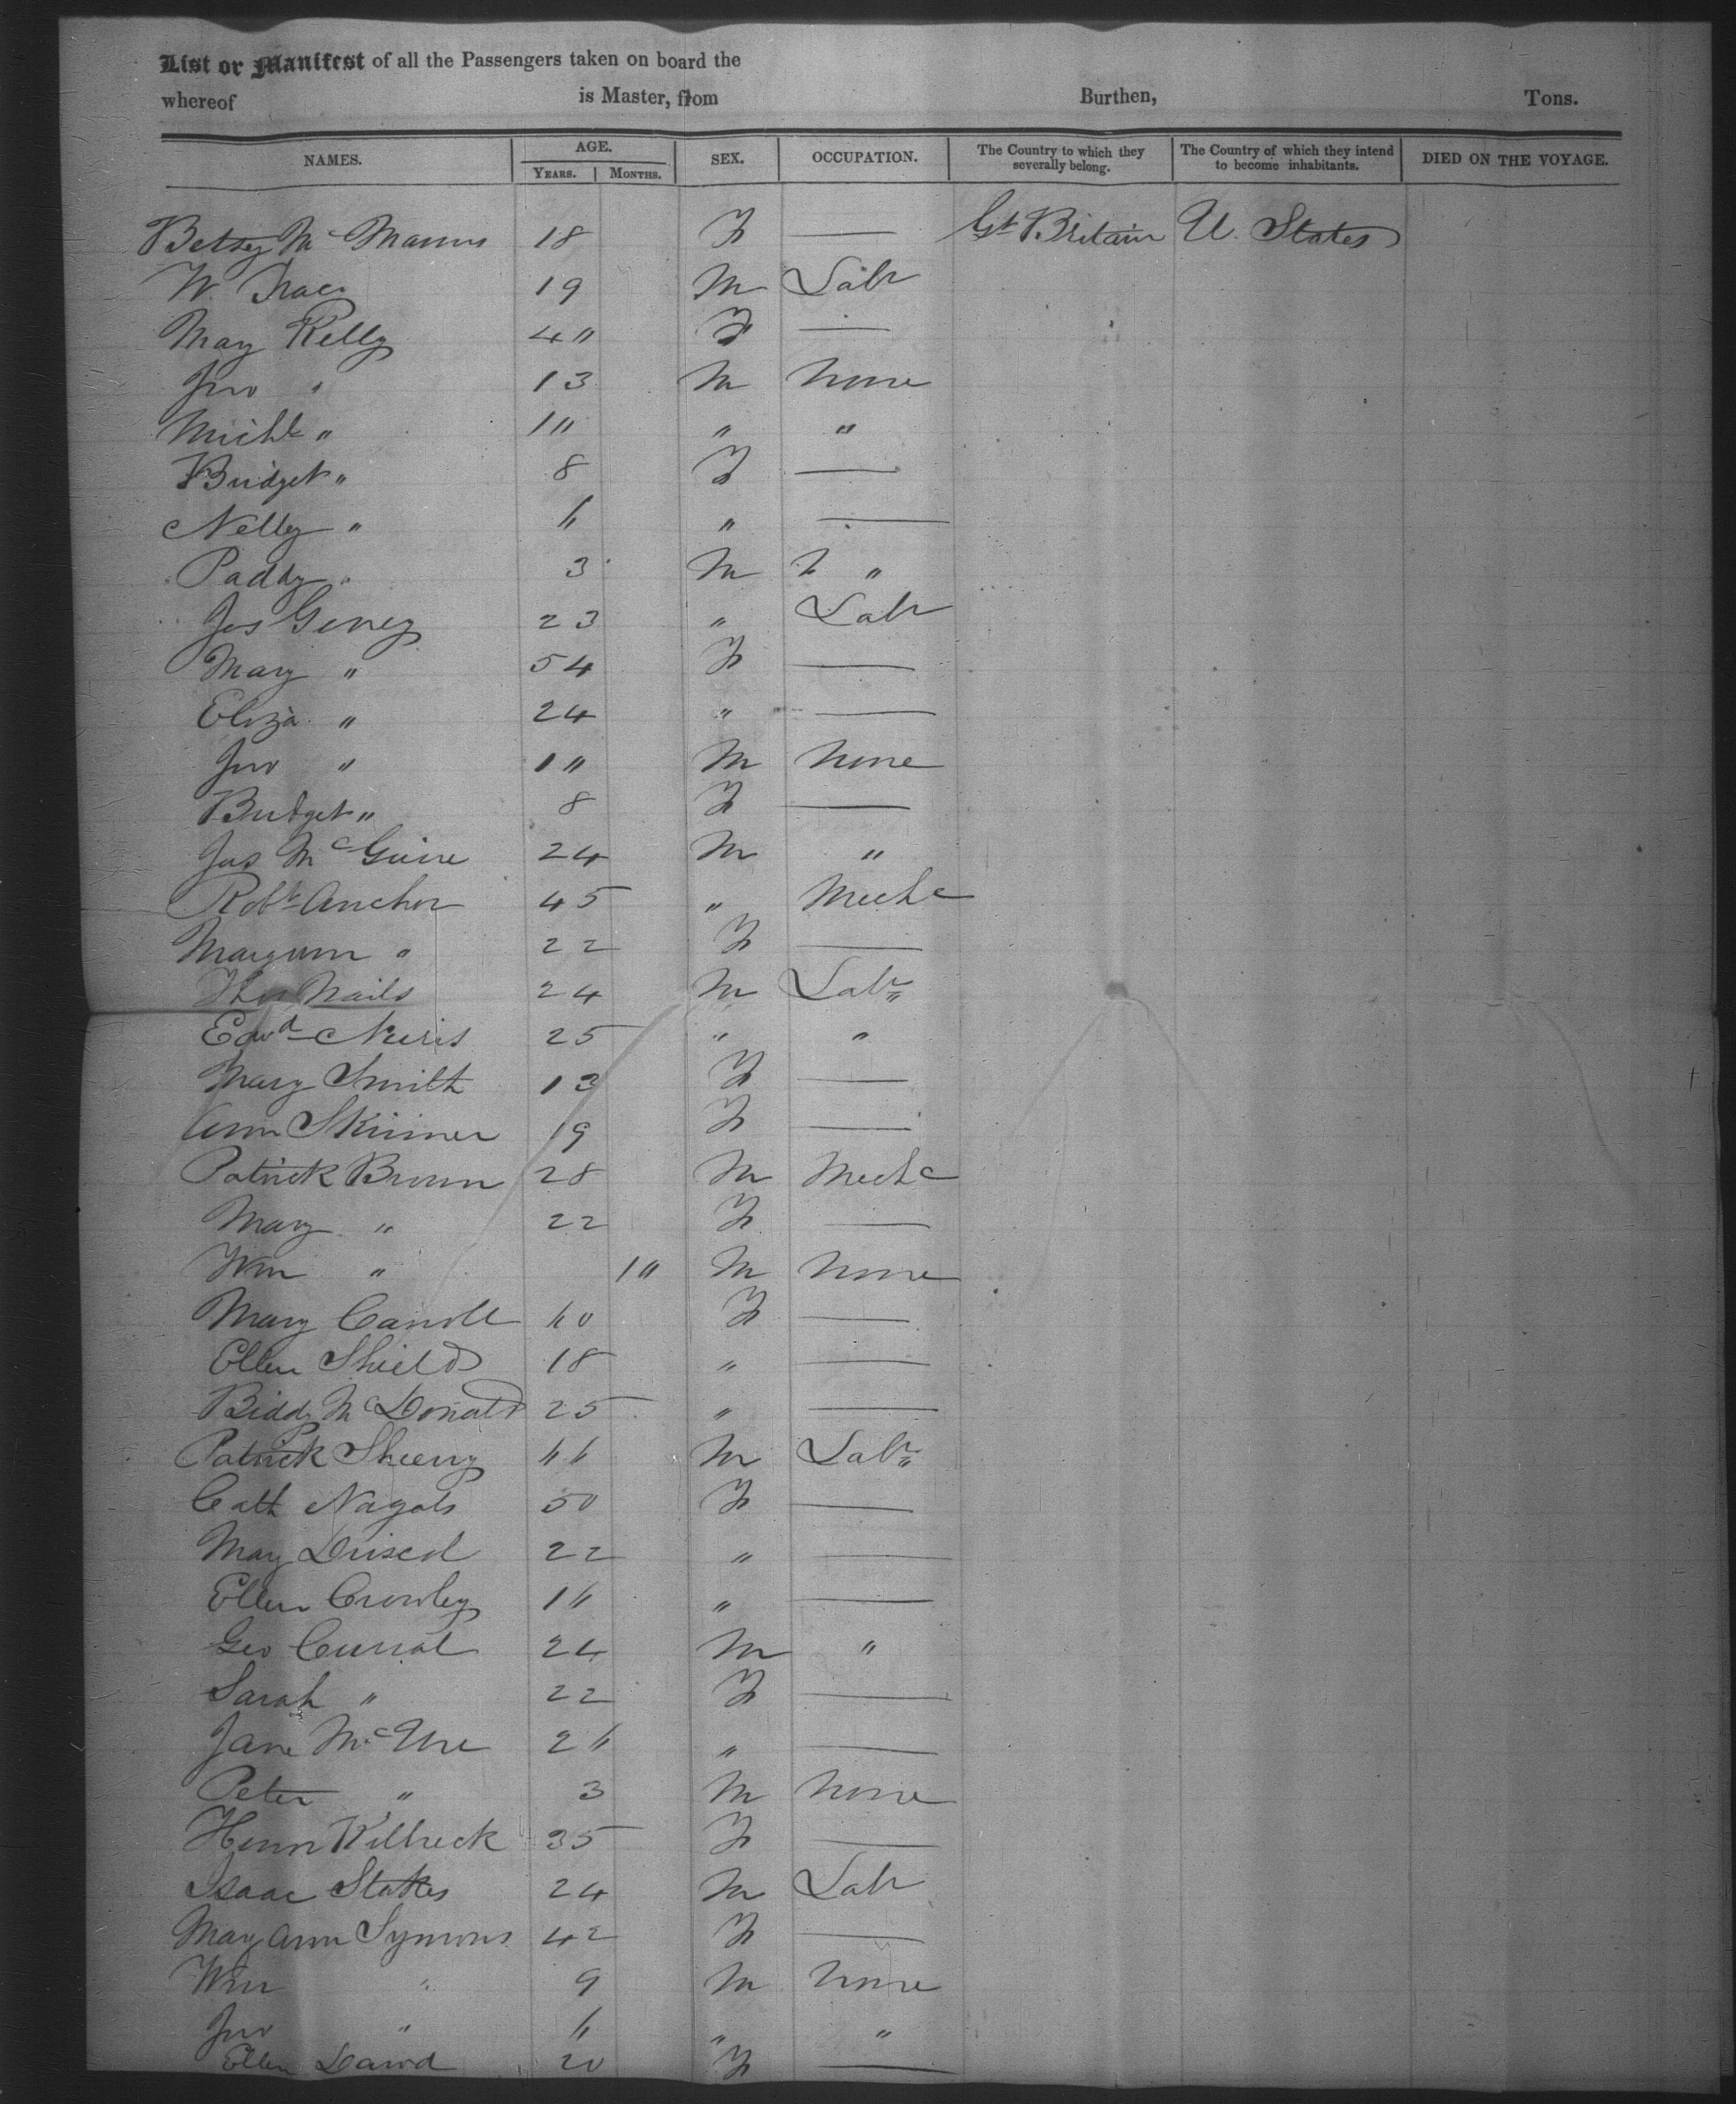 List or Manifest of all the Passengers taken on board the
whereof is Master, from Burthen, Tons.
NAMES. AGE. YEARS. MONTHS. SEX. OCCUPATION. The Country to which they severally belong. The Country of which they intend to become inhabitants. DIED ON THE VOYAGE.
Betsy McManus 18 F — Gt Britain U. States
W. 19 M Labr
May Kelly 40 F —
Jno " 13 M None
Michl " 10 " "
Bridget " 8 F —
Nelly " 6 " —
Paddy " 3 M "
Jas Geney 23 " Labr
Mary " 54 F —
Eliza " 24 " —
Jno " 10 M None
Bridget " 8 F —
Jas McGuire 24 M "
Robt Anchor 45 " Mechc
" 22 F —
Thos Nails 24 M Labr
Edwd 25 " "
Mary Smith 13 F —
Ann Skinner 19 F —
Patrick Brown 28 M Mechc
Mary " 22 F —
Wm " 10 M None
Mary Carroll 60 F —
Ellen Shield 18 " —
Biddy McDonald 25 " —
Patrick Sheery 66 M Labr
Cath Nagols 50 F —
May Driscol 22 " —
Ellen Crowley 16 " —
Geo Curral 24 M "
Sarah " 22 F —
Jane 26 " —
Peter " 3 M None
35 F —
Isaac Stakes 24 M Labr
May Ann Symons 42 F —
Wm " 9 M None
Jno " 6 " "
Ellen 20 F —